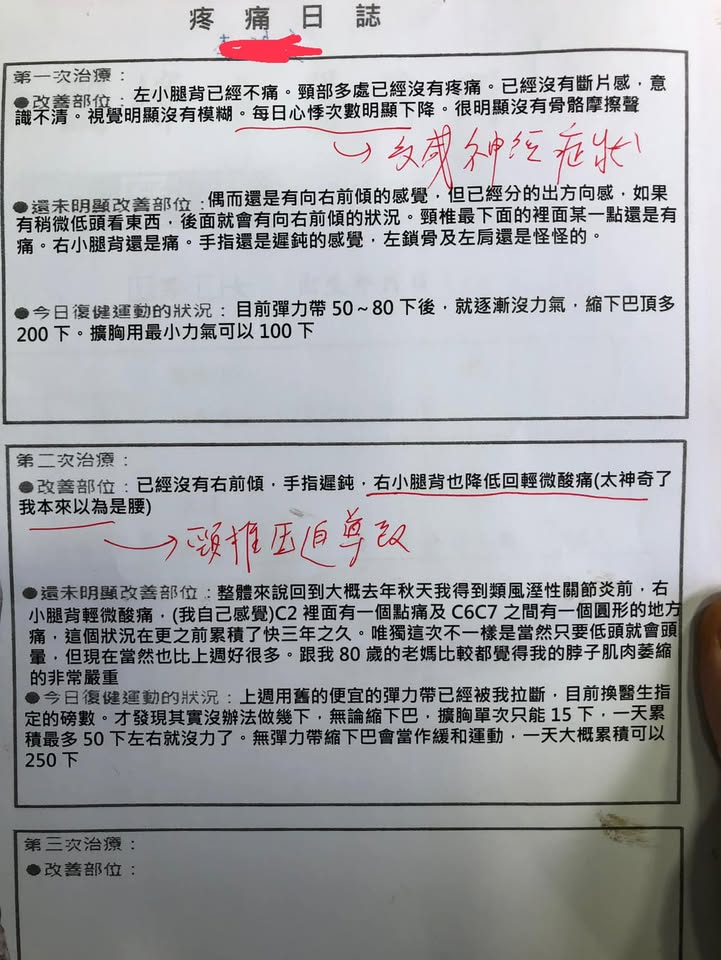 疼痛日誌
第一次治療：
●改善部位：左小腿背已經不痛。頸部多處已經沒有疼痛。已經沒有斷片感，意
識不清。視覺明顯沒有模糊。每日心悸次數明顯下降。很明顯沒有骨骼摩擦聲
→交感神經症狀
●還未明顯改善部位：偶而還是有向右前傾的感覺，但已經分的出方向感，如果
有稍微低頭看東西，後面就會有向右前傾的狀況。頸椎最下面的裡面某一點還是有
痛。右小腿背還是痛。手指還是遲鈍的感覺，左鎖骨及左肩還是怪怪的。
●今日復健運動的狀況：目前彈力帶 50～80 下後，就逐漸沒力氣，縮下巴頂多
200 下。擴胸用最小力氣可以 100 下
第二次治療：
●改善部位：已經沒有右前傾，手指遲鈍，右小腿背也降低回輕微酸痛(太神奇了
我本來以為是腰)
→頸椎压迫導致
●還未明顯改善部位：整體來說回到大概去年秋天我得到類風溼性關節炎前，右
小腿背輕微酸痛，(我自己感覺)C2 裡面有一個點痛及 C6C7 之間有一個圓形的地方
痛，這個狀況在更之前累積了快三年之久。唯獨這次不一樣是當然只要低頭就會頭
暈，但現在當然也比上週好很多。跟我 80 歲的老媽比較都覺得我的脖子肌肉萎縮
的非常嚴重
●今日復健運動的狀況：上週用舊的便宜的彈力帶已經被我拉斷，目前換醫生指
定的磅數。才發現其實沒辦法做幾下，無論縮下巴，擴胸單次只能 15 下，一天累
積最多 50 下左右就沒力了。無彈力帶縮下巴會當作緩和運動，一天大概累積可以
250 下
第三次治療：
●改善部位：